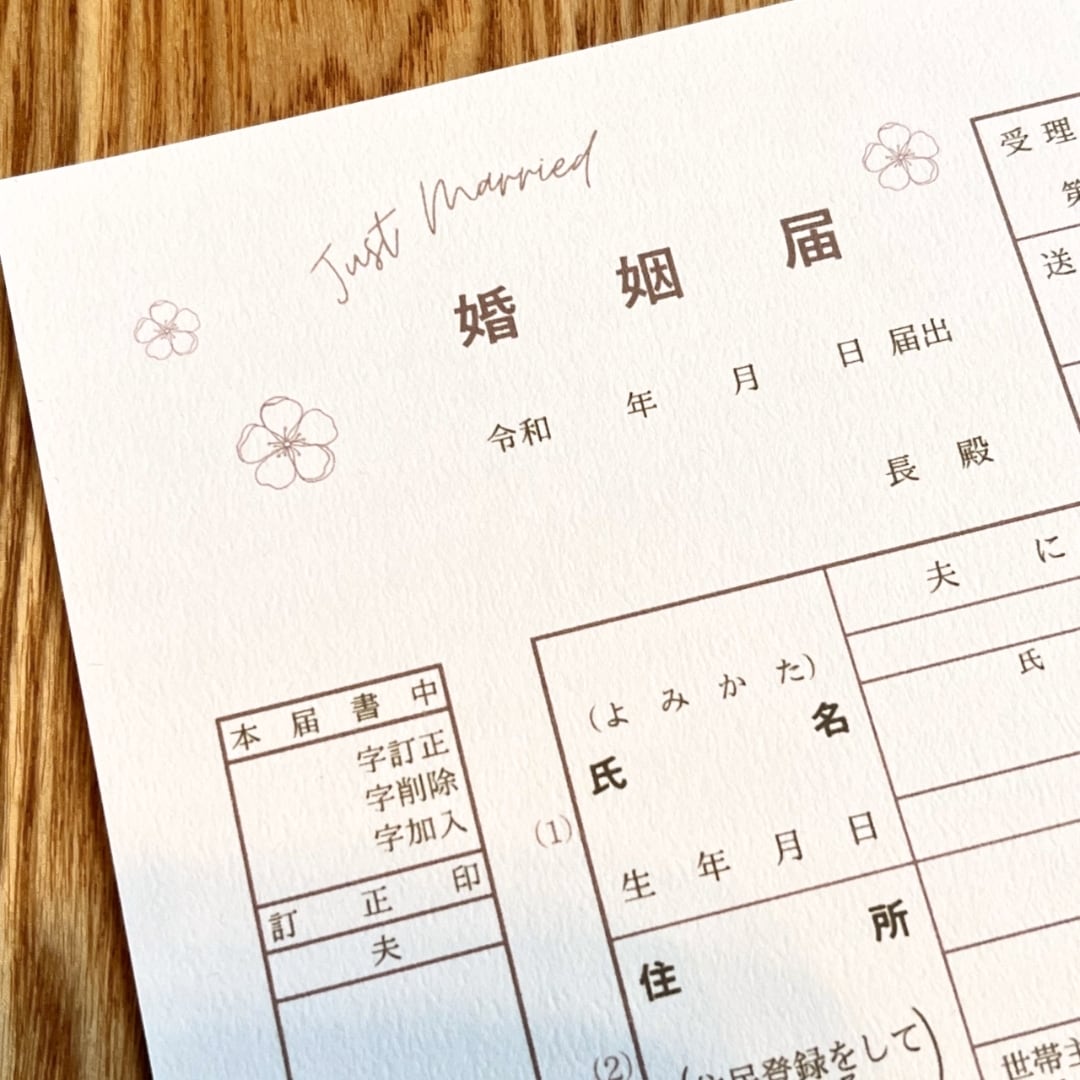 Just Married
婚姻届
令和 年 月 日 届出
長 殿
受理
第
送
夫 に
氏
本届書中
字訂正
字削除
字加入
訂正印
夫
(1)
(よみかた)
氏名
生年月日
(2)
住所
民登録をして
世帯主